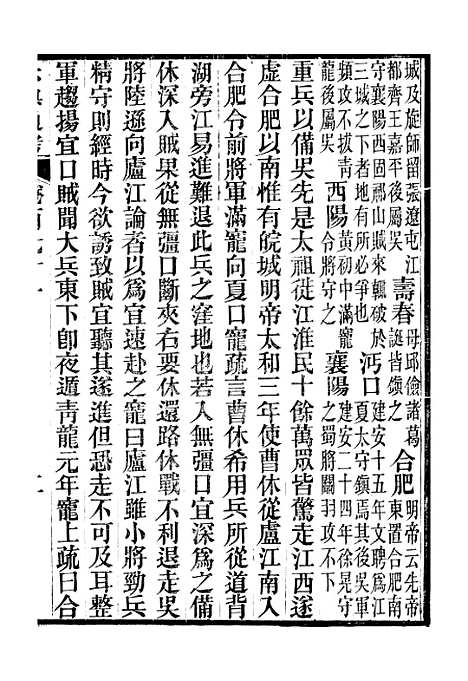 城及旋師留張遼屯江
都齊王嘉平後屬吳
壽春
毋邱儉諸葛
誕皆鎭之
合肥
明帝云先帝
東置合肥南
守襄陽西固祁山賊來輒破於
三城之下者地有所必爭也
沔口
建安十五年文聘爲江
夏太守鎭焉其後吳軍
頻攻不拔青
龍後屬吳
西陽
黃初中滿寵
合將守之
襄陽
建安二十四年徐晃守
之蜀將關羽攻不下
重兵以備吳先是太祖徙江淮民十餘萬眾皆驚走江西遂
虛合肥以南惟有皖城明帝太和三年使曹休從廬江南入
合肥令前將軍滿寵向夏口寵疏言曹休希用兵所從道背
湖旁江易進難退此兵之窪地也若入無彊口宜深爲之備
休深入賊果從無彊口斷夾右要休還路休戰不利退走吳
將陸遜向廬江論者以爲宜遠赴之寵曰廬江雖小將勁兵
精守則經時今欲誘致賊宜聽其遂進但恐走不可及耳整
軍趨揚宜口賊聞大兵東下卽夜遁靑龍元年寵上疏曰合